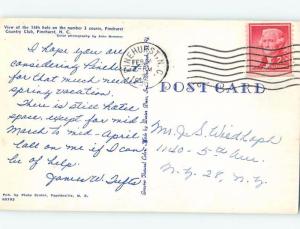 View of the 16th hole on the number 3 course, Pinehurst
Country Club, Pinehurst, N. C.
I hope you are
considering Pinehurst
for that much needed
spring vacation.
There is still hotel
space except for mid
March to mid-April
Call on me if I can
be of help.
James W. Tufts
Pub. by Photo Center, Fayetteville, N. C.
PINEHURST, N.C.
FEB
PM
POST CARD
Mr. J. S. Weidhopf
1140 - 5th Ave.
N.Y. 28, N.Y.